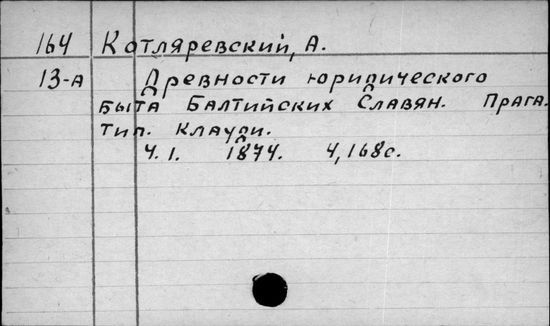 164 Котляревский, А.
13-А Древности юридического
быта Балтийских Славян. Прага.
тип. Клауди.
Ч. I. 1874. 4, 168 с.